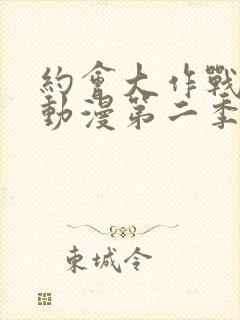 約會大作戰
動漫第二季
東城令